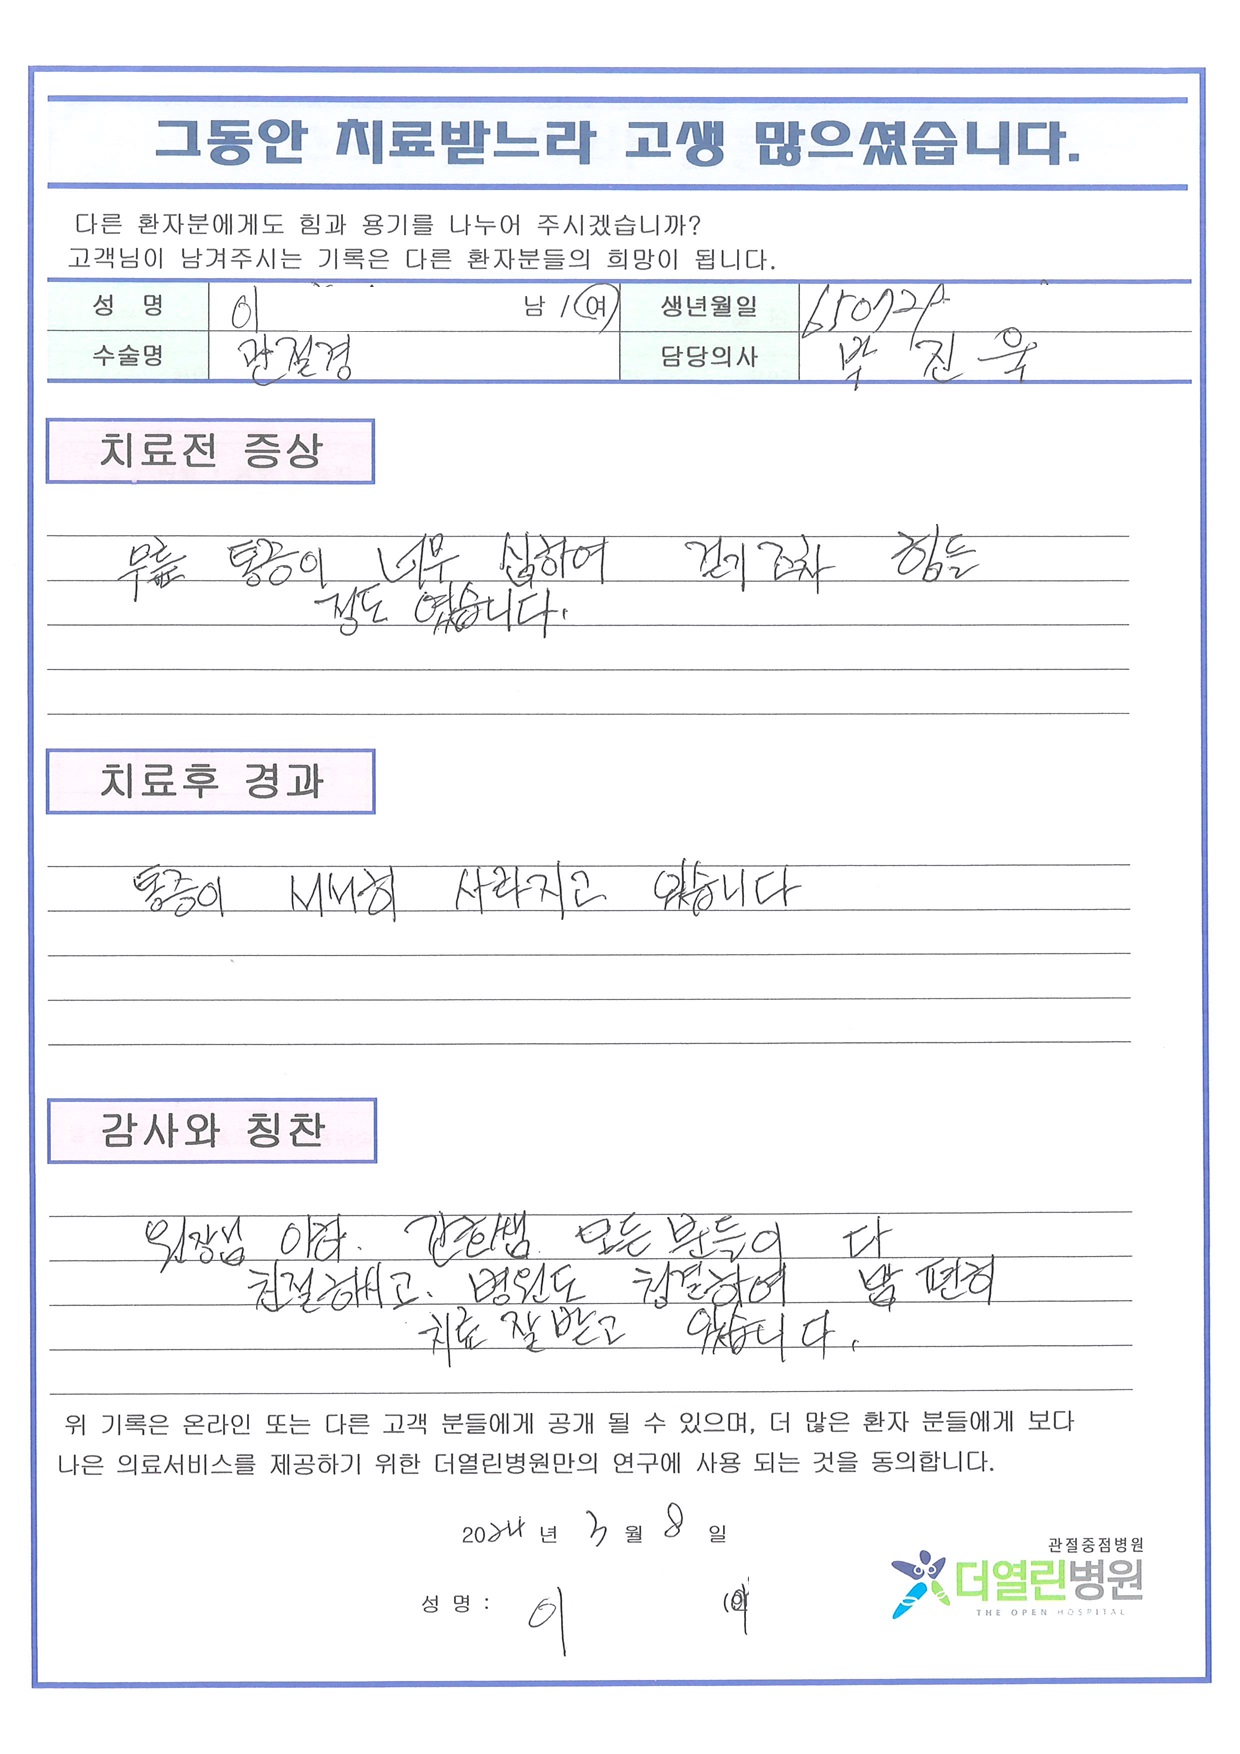 그동안 치료받느라 고생 많으셨습니다.
다른 환자분에게도 힘과 용기를 나누어 주시겠습니까?
고객님이 남겨주시는 기록은 다른 환자분들의 희망이 됩니다.
성 명 이 남 / 여 생년월일 65072
수술명 관절경 담당의사 박 진 욱
치료전 증상
무릎 통증이 너무 심하여 걷기 조차 힘들
정도 였습니다.
치료후 경과
통증이 서서히 사라지고 있습니다
감사와 칭찬
원장님 이하. 간호쌤 모든 분들이 다
친절하시고. 병원도 청결하여 맘 편히
치료 잘 받고 있습니다.
위 기록은 온라인 또는 다른 고객 분들에게 공개 될 수 있으며, 더 많은 환자 분들에게 보다
나은 의료서비스를 제공하기 위한 더열린병원만의 연구에 사용 되는 것을 동의합니다.
2024 년 3 월 8 일
관절중점병원
더열린병원
THE OPEN HOSPITAL
성 명 : 이 (인)